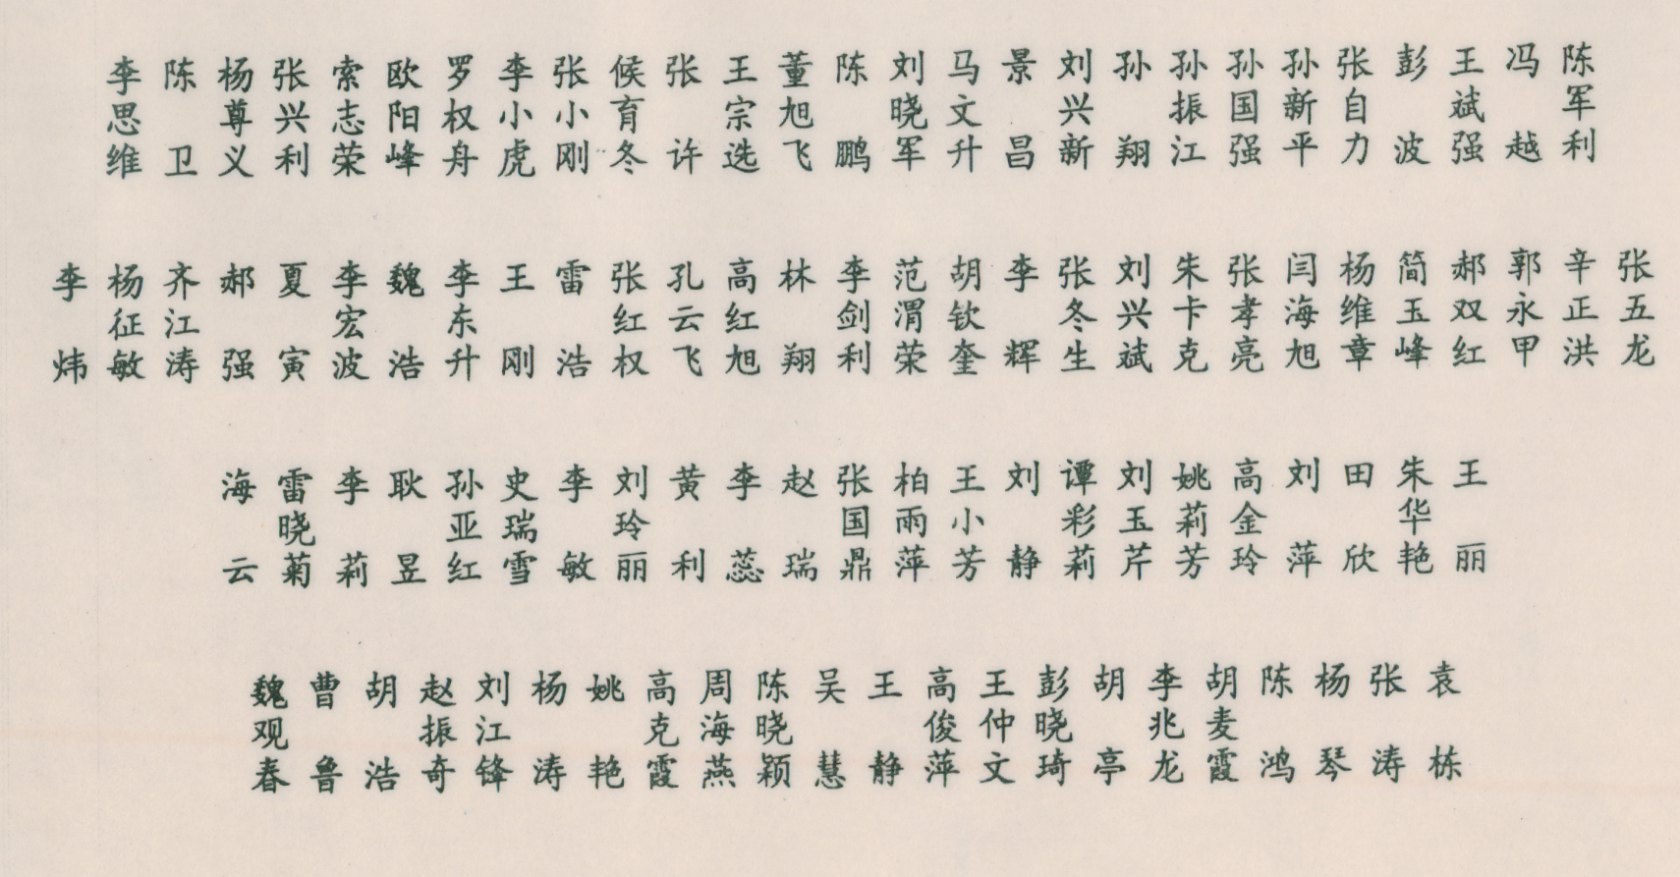 李思维 陈卫 杨尊义 张兴利 索志荣 欧阳峰 罗权舟 李小虎 张小刚 候育冬 张许 王宗选 董旭飞 陈鹏 刘晓军 马文升 景昌 刘兴新 孙翔 孙振江 孙国强 孙新平 张自力 彭波 王斌强 冯越 陈军利
李炜 杨征敏 齐江涛 郝强 夏寅 李宏波 魏浩 李东升 王刚 雷浩 张红权 孔云飞 高红旭 林翔 李剑利 范渭荣 胡钦奎 李辉 张冬生 刘兴斌 朱卡克 张孝亮 闫海旭 杨维章 简玉峰 郝双红 郭永甲 辛正洪 张五龙
海云 雷晓菊 李莉 耿昱 孙亚红 史瑞雪 李敏 刘玲丽 黄利 李蕊 赵瑞 张国鼎 柏雨萍 王小芳 刘静 谭彩莉 刘玉芹 姚莉芳 高金玲 刘萍 田欣 朱华艳 王丽
魏观春 曹鲁 胡浩 赵振奇 刘江锋 杨涛 姚艳 高克霞 周海燕 陈晓颖 吴慧 王静 高俊萍 王仲文 彭晓琦 胡亭 李兆龙 胡麦霞 陈鸿 杨琴 张涛 袁栋